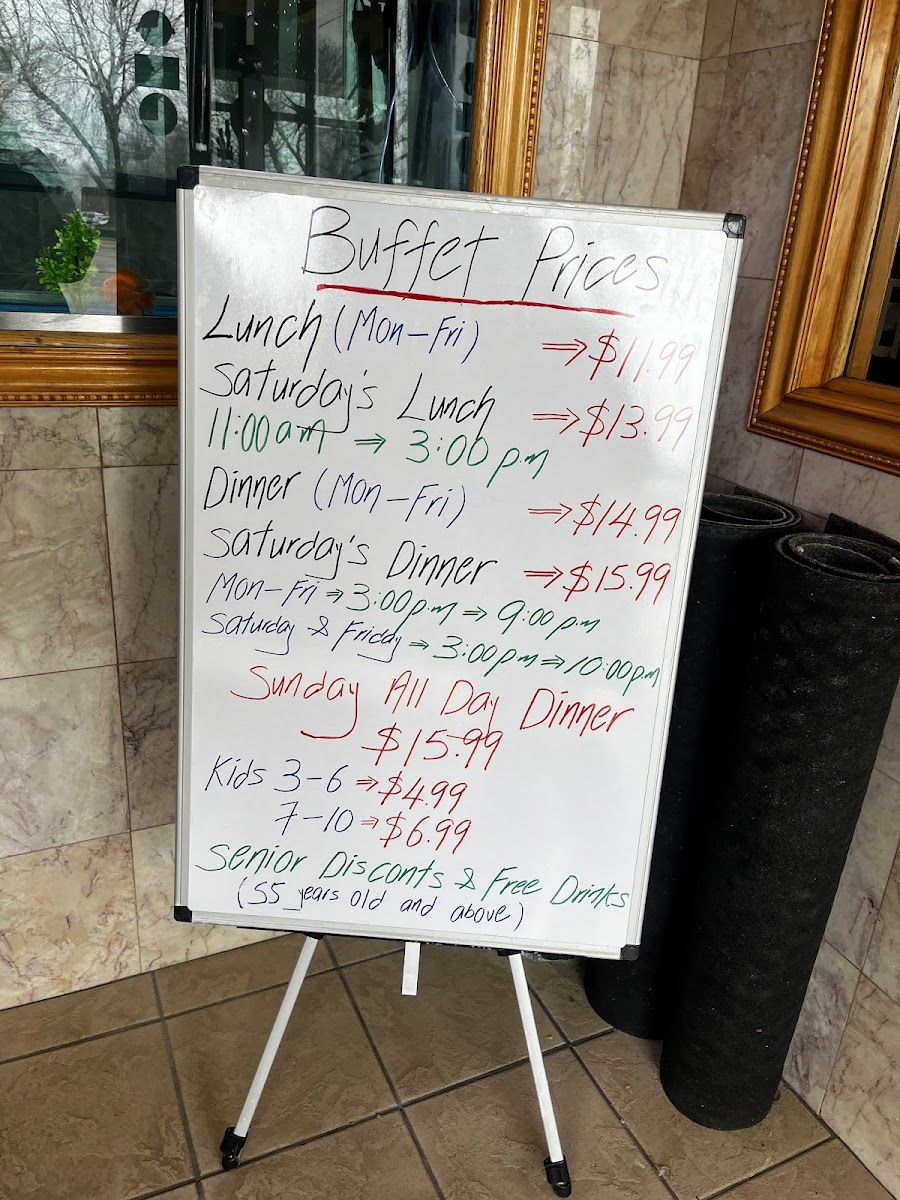 Buffet Prices
Lunch (Mon-Fri) ⇒ $11.99
Saturday's Lunch ⇒ $13.99
11:00am ⇒ 3:00 p.m
Dinner (Mon-Fri) ⇒ $14.99
Saturday's Dinner ⇒ $15.99
Mon-Fri ⇒ 3:00p.m ⇒ 9:00 p.m
Saturday & Friday ⇒ 3:00p.m ⇒ 10:00p.m
Sunday All Day Dinner
$15.99
Kids 3-6 ⇒ $4.99
7-10 ⇒ $6.99
Senior Disconts & Free Drinks
(55 years old and above)